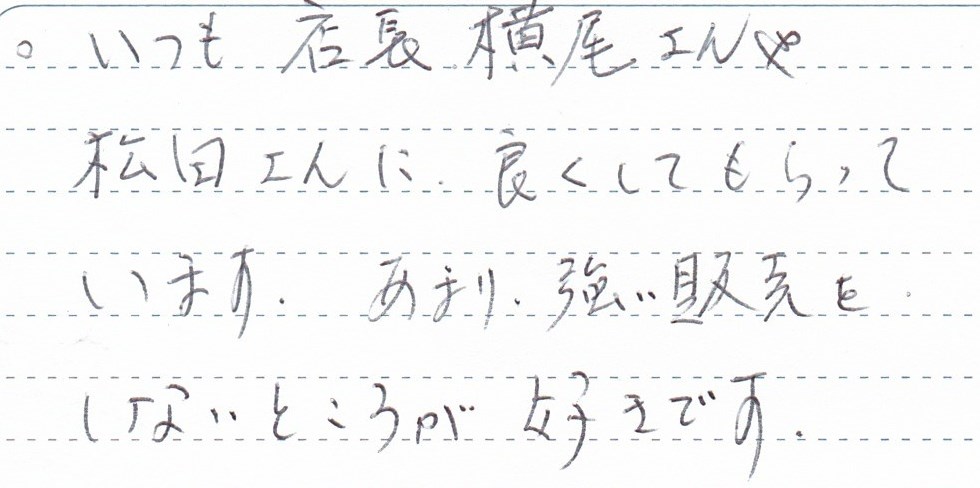 。いつも店長横尾さんや
松田さんに.良くしてもらって
います. あまり.強い販売を.
しないところが好きです.